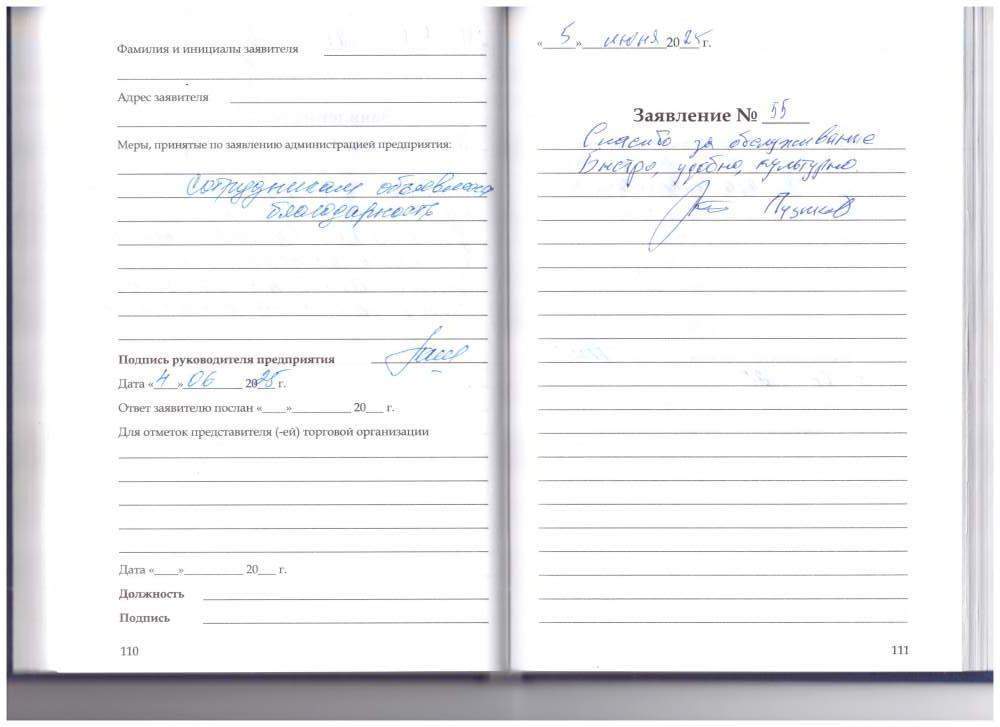 Фамилия и инициалы заявителя
Адрес заявителя
Меры, принятые по заявлению администрацией предприятия:
Сотрудникам объявлена
благодарность
Подпись руководителя предприятия
Дата «4» 06 2025 г.
Ответ заявителю послан «____»__________ 20___ г.
Для отметок представителя (-ей) торговой организации
Дата «____»__________ 20___ г.
Должность
Подпись
110
«5» июня 2025 г.
Заявление № 55
Спасибо за обслуживание
Быстро, удобно, культурно.
111